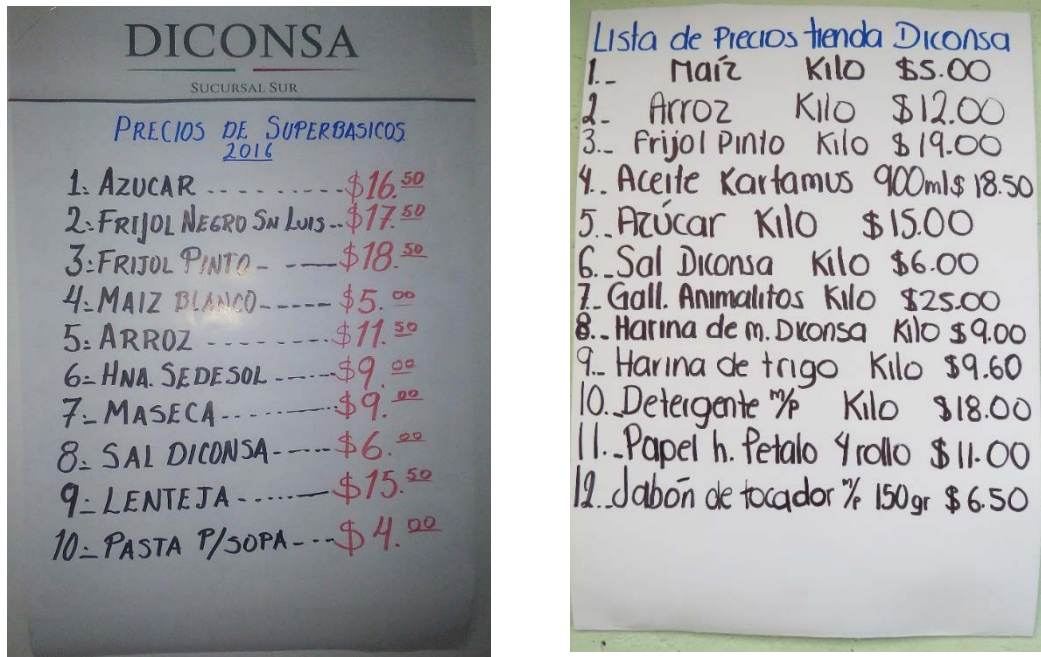 DICONSA
SUCURSAL SUR
PRECIOS DE SUPERBASICOS
2016
1.- AZUCAR ---------- $16.50
2.- FRIJOL NEGRO SN LUIS -- $17.50
3.- FRIJOL PINTO - ---- $18.50
4.- MAIZ BLANCO ------ $5.00
5.- ARROZ --------- $11.50
6.- HNA. SEDESOL ------ $9.00
7.- MASECA -------- $9.00
8.- SAL DICONSA ----- $6.00
9.- LENTEJA -------- $15.50
10.- PASTA P/SOPA ---- $4.00
Lista de Precios tienda Diconsa
1.- Maíz Kilo $5.00
2.- Arroz Kilo $12.00
3.- Frijol Pinto Kilo $19.00
4.- Aceite Kartamus 900ml $18.50
5.- Azúcar Kilo $15.00
6.- Sal Diconsa Kilo $6.00
7.- Gall. Animalitos Kilo $25.00
8.- Harina de m. Diconsa Kilo $9.00
9.- Harina de trigo Kilo $9.60
10.- Detergente m/p Kilo $18.00
11.- Papel h. Petalo 4 rollo $11.00
12.- Jabón de tocador m/p 150gr $6.50